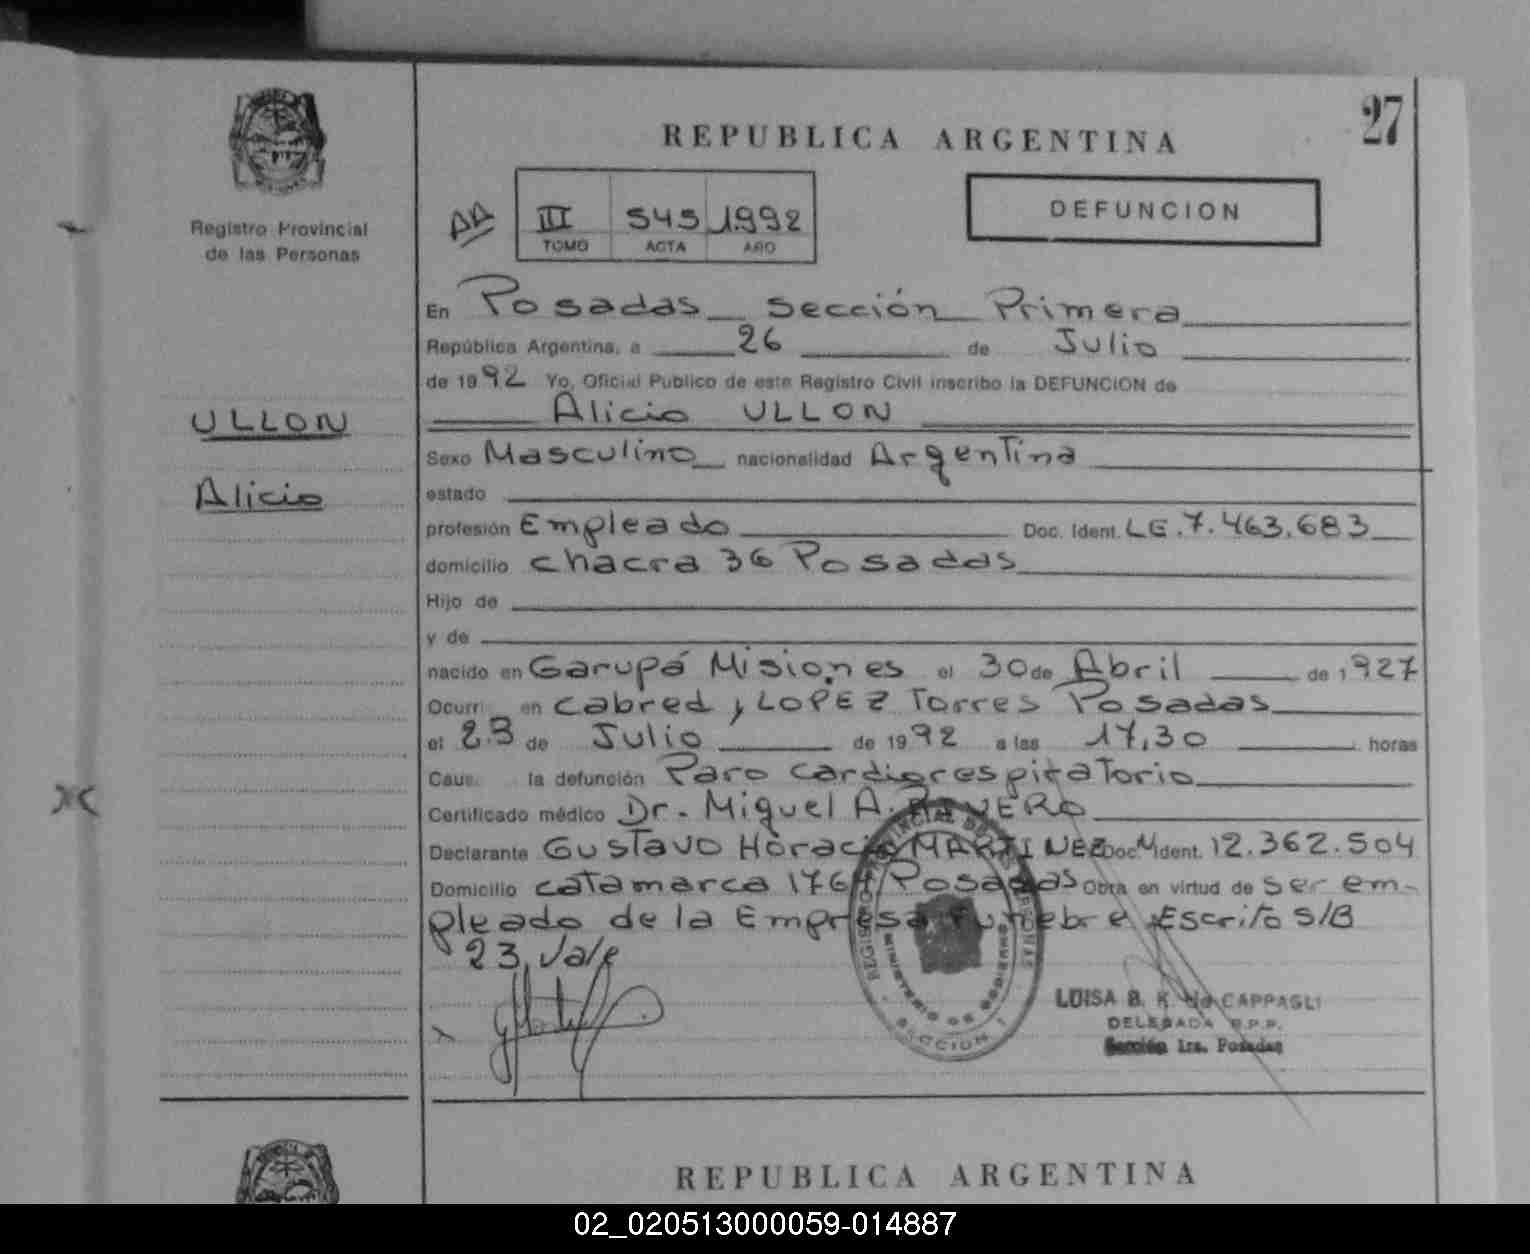 27
REPUBLICA ARGENTINA
Registro Provincial
de las Personas
III 545 1992
TOMO ACTA AÑO
DEFUNCION
En Posadas sección Primera
República Argentina, a 26 de Julio
de 1992 Yo, Oficial Publico de este Registro Civil inscribo la DEFUNCION de
Alicio ULLON
ULLON
Alicio
Sexo Masculino nacionalidad Argentina
estado
profesión Empleado Doc. Ident. LE.7.463.683
domicilio chacra 36 Posadas
Hijo de
y de
nacido en Garupá Misiones el 30 de Abril de 1927
Ocurri en cabred y LOPEZ Torres Posadas
el 23 de Julio de 1992 a las 17,30 horas
Caus. la defunción Paro cardiorespiratorio
Certificado médico Dr. Miguel A. RIVERO
Declarante Gustavo Horacio MARTINEZ Doc. Ident. 12.362.504
Domicilio catamarca 1764 Posadas Obra en virtud de ser em-
pleado de la Empresa Funebre Escrito S/B
23 Vale
REGISTRO PROVINCIAL DE LAS PERSONAS
MINISTERIO DE GOBIERNO
SECCION 1
LUISA B. K. de CAPPAGLI
DELEGADA R.P.P.
Sección 1ra. Posadas
REPUBLICA ARGENTINA
02_020513000059-014887